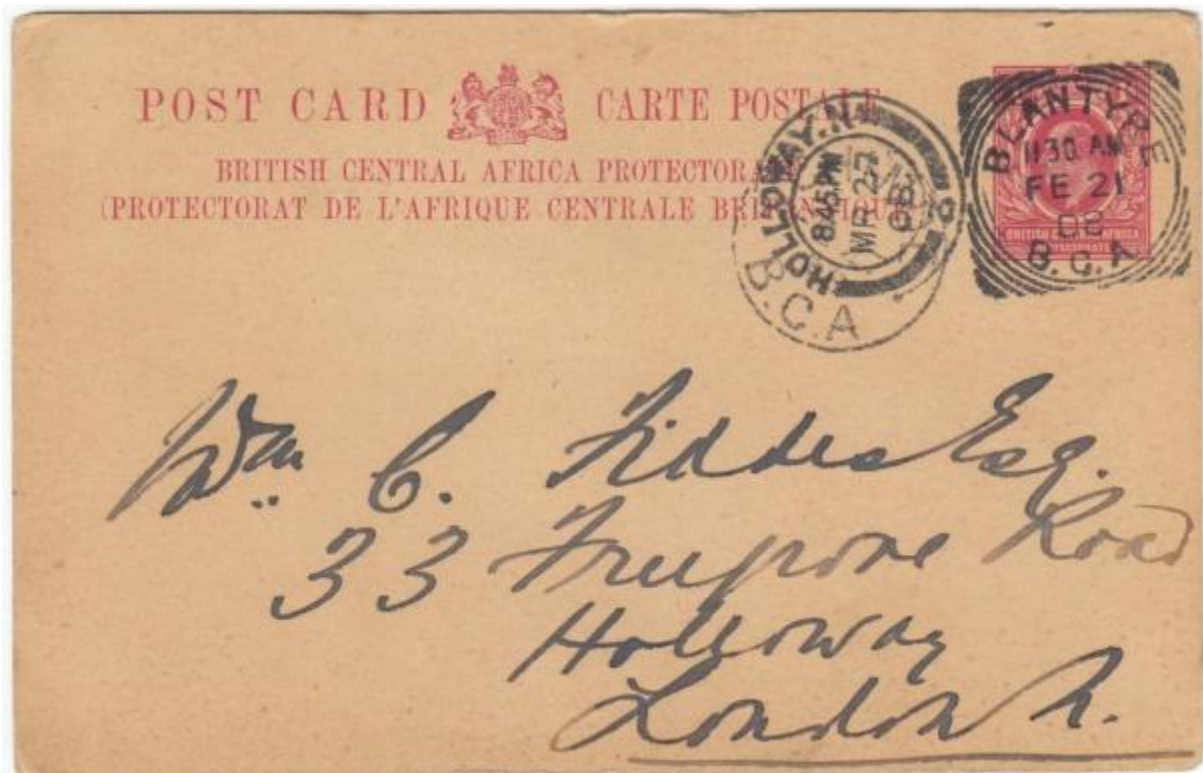 POST CARD CARTE POSTALE
BRITISH CENTRAL AFRICA PROTECTORA
(PROTECTORAT DE L'AFRIQUE CENTRALE BRI
HOLLOWAY.N.
8.45PM
MR 27
08
B.C.A
BLANTYRE
11 30 AM
FE 21
08
B.C.A
BRITISH CENTRAL AFRICA
Wm C. Fiddes Esq.
33 Road
Holloway
London N.